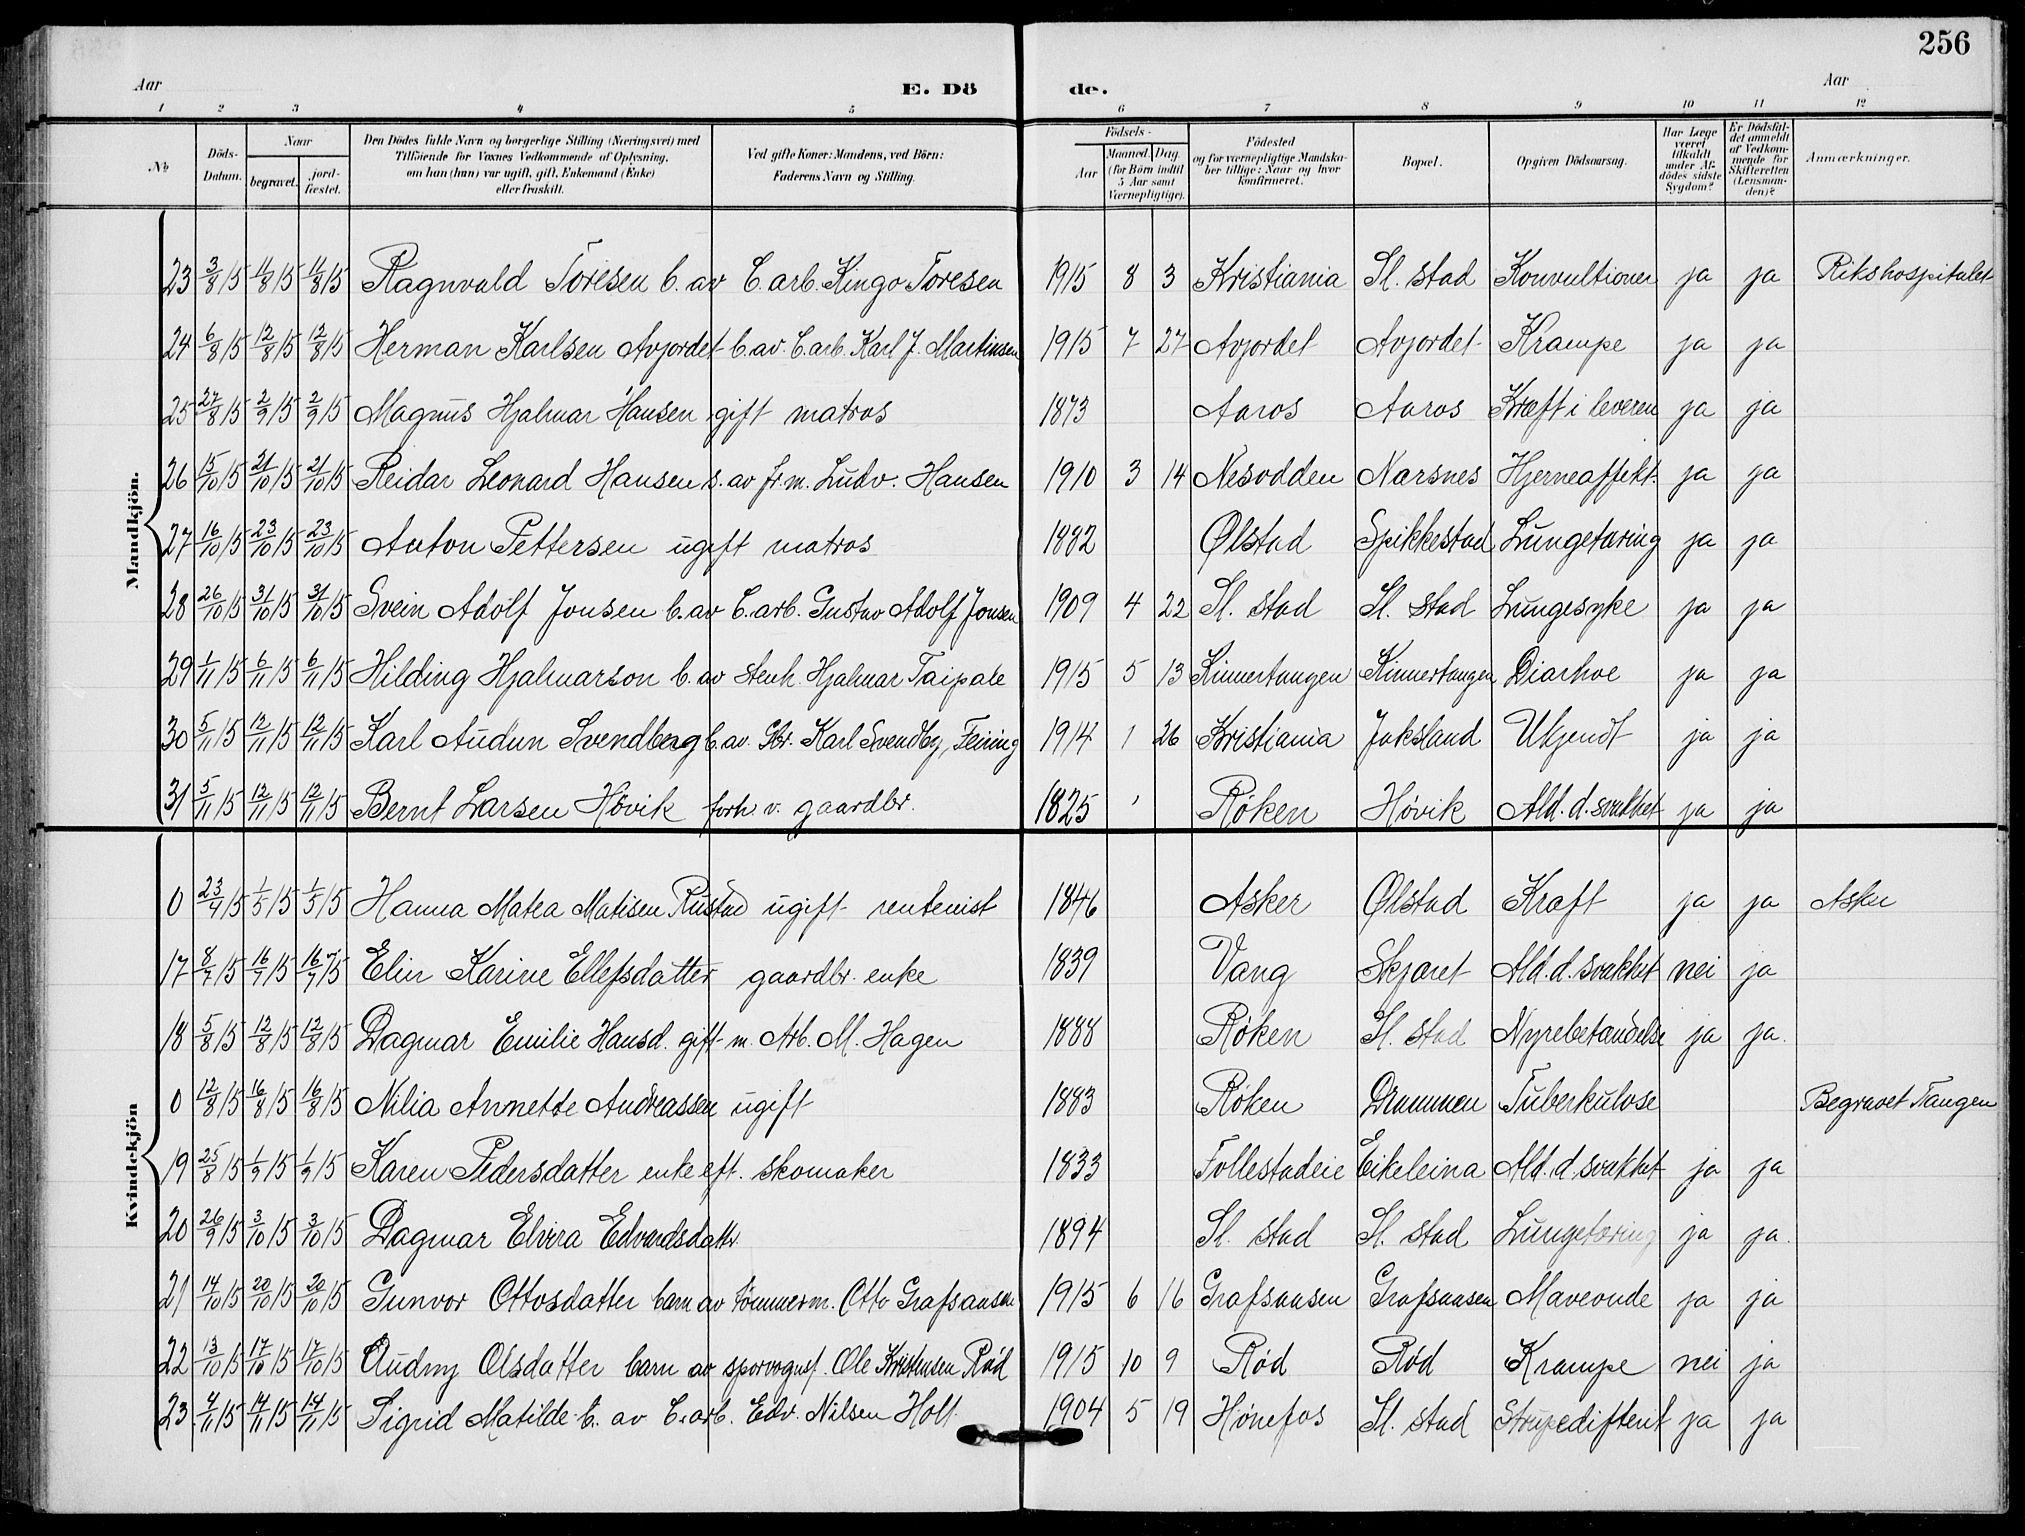 256
Aar
E. Dö de.
Aar
1 2 3 4 5 6 7 8 9 10 11 12
No
Döds-Datum.
Naar begravet. jord-fæstet.
Den Dödes fulde Navn og borgerlige Stilling (Næringsvei) med Tilföiende for Voxnes Vedkommende af Oplysning, om han (hun) var ugift, gift, Enkemand (Enke) eller fraskilt.
Ved gifte Koner: Mandens, ved Börn: Faderens Navn og Stilling.
Födsels-
Aar
Maaned. Dag. (for Börn indtil 5 Aar samt Værnepligtige).
Födested og for værnepligtige Mandskaber tillige: Naar og hvor konfirmeret.
Bopæl.
Opgiven Dödsaarsag.
Har Læge været tilkaldt under Afdödes sidste Sygdom?
Er Dödsfaldet anmeldt af Vedkommende for Skifteretten (Lensmanden)?
Anmærkninger.
Mandkjön.
23 3/8 15 11/8 15 11/8 15 Ragnvald Toresen b. av C. arb. Kingo Toresen 1915 8 3 Kristiania Sl. stad Konvultioner ja ja Rikshospitalet
24 6/8 15 12/8 15 12/8 15 Herman Karlsen Avjordet b. av C. arb. Karl J. Martinsen 1915 7 27 Avjordet Avjordet Krampe ja ja
25 27/8 15 2/9 15 2/9 15 Magnus Hjalmar Hansen gift matros 1873 Aaros Aaros Kræft i leveren ja ja
26 15/10 15 21/10 15 21/10 15 Reidar Leonard Hansen s. av fr. m. Ludv. Hansen 1910 3 14 Nesodden Nærsnes Hjerneaffekt. ja ja
27 16/10 15 23/10 15 23/10 15 Anton Pettersen ugift matros 1882 Ølstad Spikkestad Lungetæring ja ja
28 26/10 15 31/10 15 31/10 15 Svein Adolf Jonsen b. av C. arb. Gustav Adolf Jonsen 1909 4 22 Sl. stad Sl. stad Lungesyke ja ja
29 1/11 15 6/11 15 6/11 15 Hilding Hjalmarson b. av stenh. Hjalmar Taipale 1915 5 13 Kinnertangen Kinnertangen Diarhoe ja ja
30 5/11 15 12/11 15 12/11 15 Karl Audun Svendberg b. av Gbr. Karl Svendby, Feiring 1914 1 26 Kristiania Jaksland Ukjendt ja ja
31 5/11 15 12/11 15 12/11 15 Bernt Larsen Høvik forh. v. gaardbr. 1825 Røken Høvik Ald. d. svakhet ja ja
Kvindekjön
0 23/4 15 1/5 15 1/5 15 Hanna Matea Matisen Rustad ugift rentenist 1846 Asker Ølstad Kræft ja ja Asker
17 8/7 15 16/7 15 16/7 15 Elin Karine Ellefsdatter gaardbr. enke 1839 Vang Skjæret Ald. d. svakhet nei ja
18 5/8 15 12/8 15 12/8 15 Dagmar Emilie Hansd. gift m. Arb. M. Hagen 1888 Røken Sl. stad Nyrebetændelse ja ja.
0 12/8 15 16/8 15 16/8 15 Nilia Annette Andreassen ugift 1883 Røken Drammen Tuberkulose Begravet Tangen
19 25/8 15 1/9 15 1/9 15 Karen Pedersdatter enke eft. skomaker 1833 Follestadeie Eikeleina Ald. d. svakhet ja ja
20 26/9 15 3/10 15 3/10 15 Dagmar Elvira Edvardsdattr. 1894 Sl. stad Sl. stad Lungetæring ja ja.
21 14/10 15 20/10 15 20/10 15 Gunvor Ottosdatter barn av tømmerm. Otto Grafsaasen 1915 6 16 Grafsaasen Grafsaasen Maveonde ja ja
22 13/10 15 17/10 15 17/10 15 Audny Olsdatter barn av sporvognsf. Ole Kristensen Rød 1915 10 9 Rød Rød Krampe nei ja
23 7/11 15 14/11 15 14/11 15 Sigrid Matilde b. av C. arb. Edv. Nilsen Holt 1904 5 19 Hønefos Sl. stad Strupedifterit ja ja